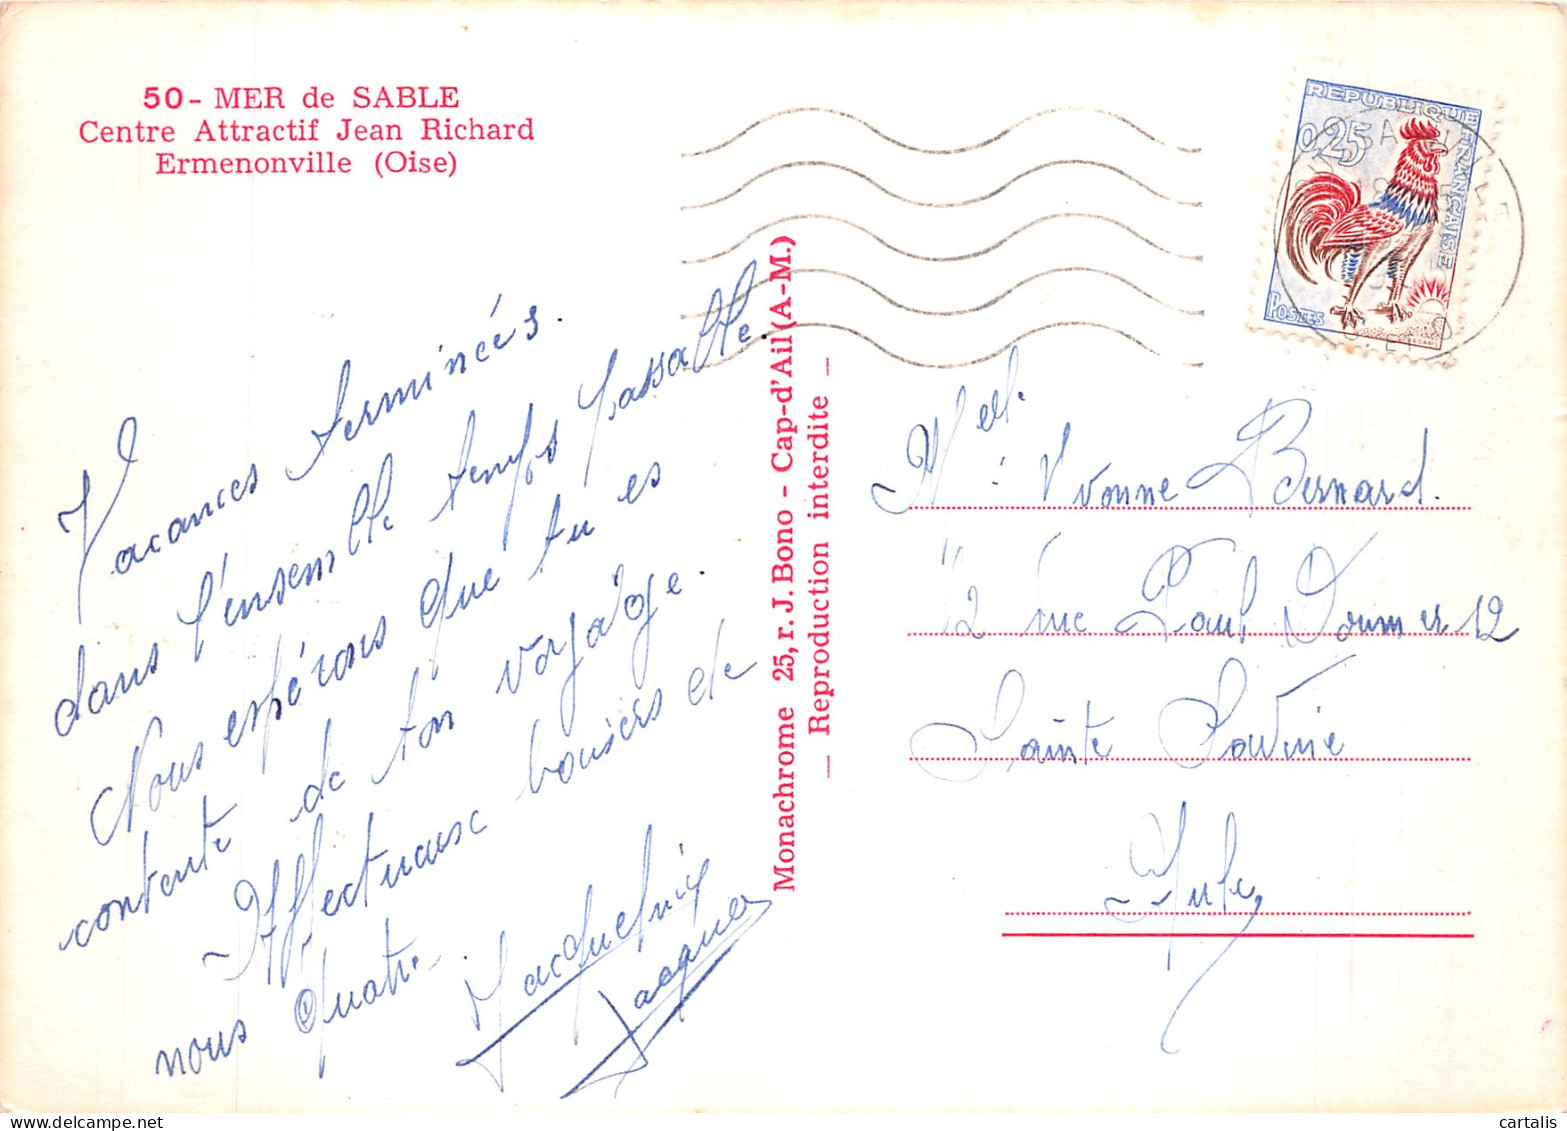 50 - MER de SABLE
Centre Attractif Jean Richard
Ermenonville (Oise)
Vacances terminées.
dans l'ensemble temps passable.
Nous espérons que tu es
contente de ton voyage.
Affectueux baisers de
nous quatre.
Jacqueline
Jacques
Monachrome 25, r. J. Bono - Cap-d'Ail (A-M.)
— Reproduction interdite —
REPUBLIQUE FRANÇAISE
0,25
POSTES
Melle Yvonne Bernard.
12 rue Paul Doumer 12
Sainte Savine
Aube
cartalis